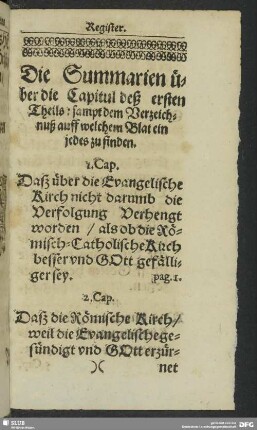 Register.
Die Summarien ü-
ber die Capitul deß ersten
Theils: sampt dem Verzeich-
nuß auff welchem Blat ein
jedes zu finden.
1. Cap.
Daß über die Evangelische
Kirch nicht darumb die
Verfolgung Verhengt
worden / als ob die Rö-
misch-Catholische Kirch
besser vnd GOtt gefälli-
ger sey. pag. 1.
2. Cap.
Daß die Römische Kirch /
weil die Evangelische ge-
sündigt vnd GOtt erzür-
)( net
SLUB
DFG